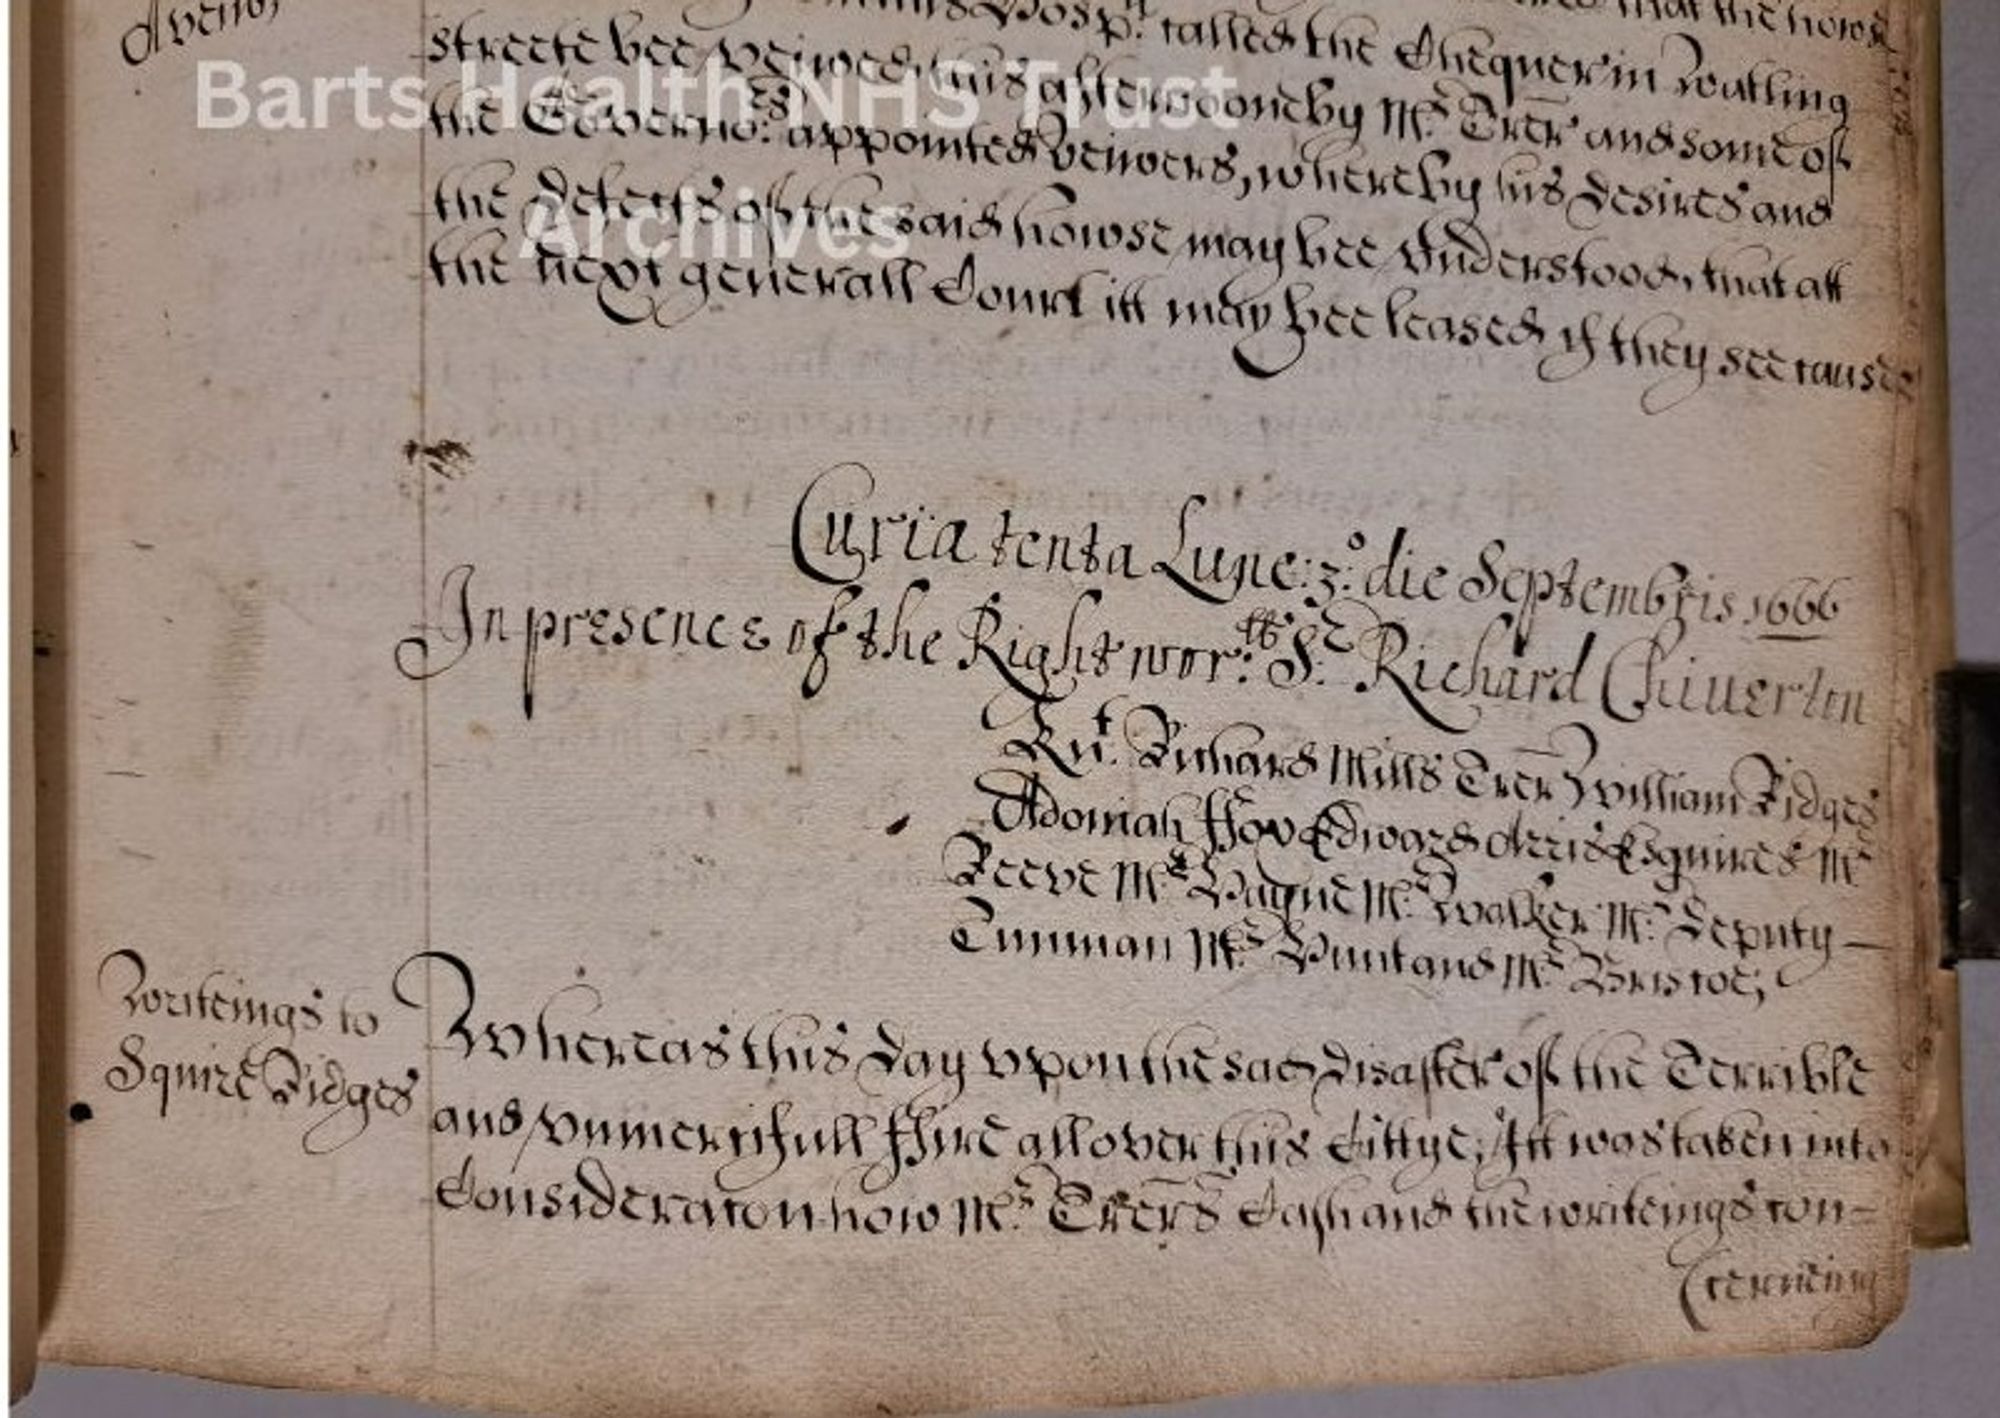 Barts Health NHS Trust
Archives
called the Chequer in Watling
streete bee veiwed this afternoone by Mr. Trer and some of
the Governors. appointed veiwers, whereby his desires and
the defects of the said howse may bee vnderstood, that att
the next generall Court itt may bee leased if they see cause
Curia tenta Lune: 3o: die Septembris 1666
In presence of the Right worll: Sr: Richard Chiuerton
Knt. Richard Mills Trer William Ridges
Adoniah ffox Edward Arris Esquires Mr
Reeve Mr Payne Mr. Walker Mr: Deputy
Tinman Mr: Punt and Mr. Bristoe;
Writeings to
Squire Ridges
Whereas this day vpon the sad disaster of the Terrible
and vnmercifull ffire all over this Cittye; Itt was taken into
Consideracon how Mr: Trers Cash and the writeings con=
(cerneing